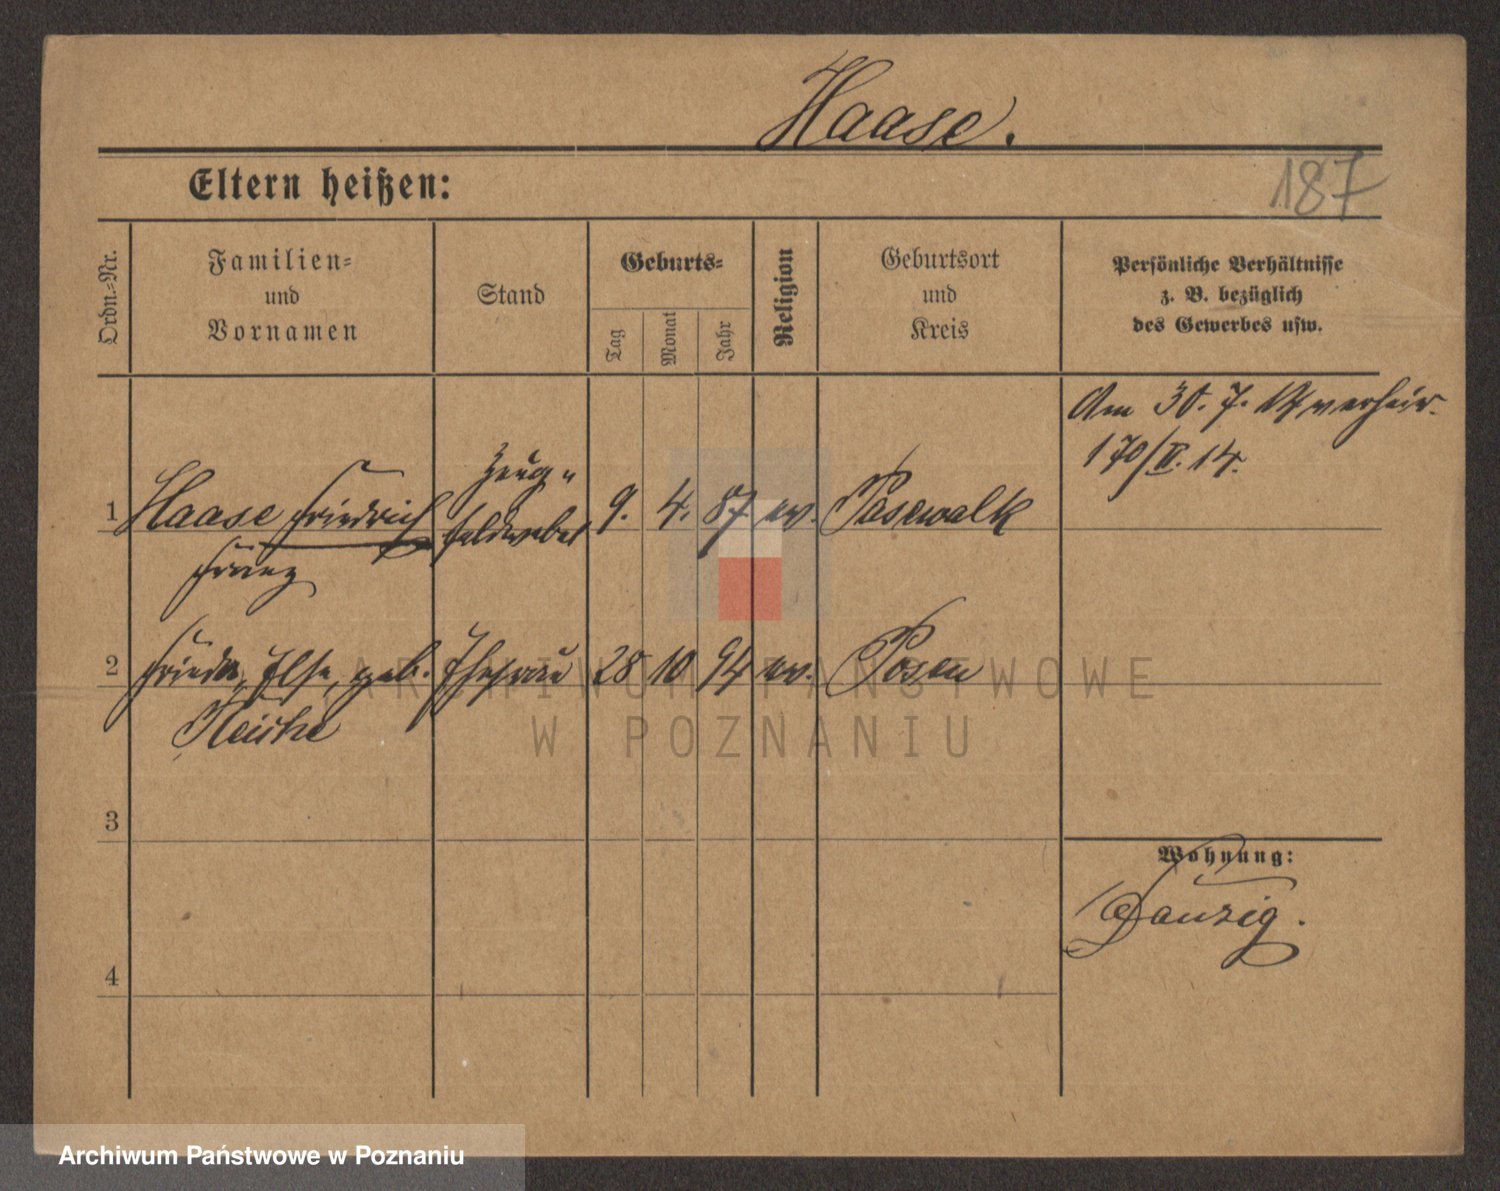 Haase.
187
Eltern heißen:
Ordn.-Nr.
Familien-
und
Vornamen
Stand
Geburts-
Tag
Monat
Jahr
Religion
Geburtsort
und
Kreis
Persönliche Verhältnisse
z. B. bezüglich
des Gewerbes usw.
Am 30. 7. 14 verheir.
170/II. 14.
1 Haase Friedrich Zeug- 9. 4. 87 ev. Pasewalk
Franz feldwebel
2 Frieda, Else, geb. Ehefrau 28 10 94 ev. Posen
3
4
Wohnung:
Danzig.
ARCHIWUM PAŃSTWOWE
W POZNANIU
Archiwum Państwowe w Poznaniu